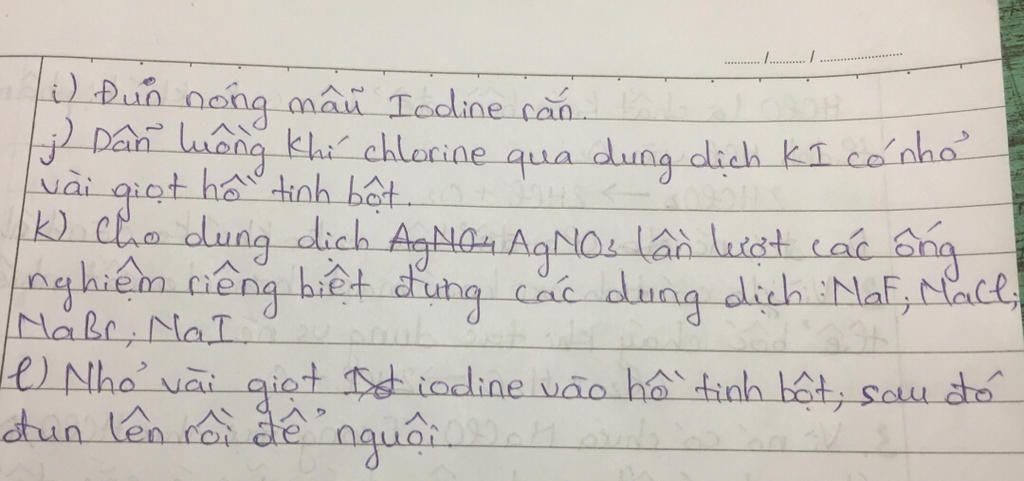 ..../..../............
i) Đun nóng mẫu Iodine rắn.
j) Dẫn luồng khí chlorine qua dung dịch KI có nhỏ
vài giọt hồ tinh bột.
k) Cho dung dịch AgNO4 AgNO3 lần lượt các ống
nghiệm riêng biệt đựng các dung dịch: NaF; NaCl;
NaBr; NaI.
l) Nhỏ vài giọt iodine vào hồ tinh bột; sau đó
đun lên rồi để nguội.